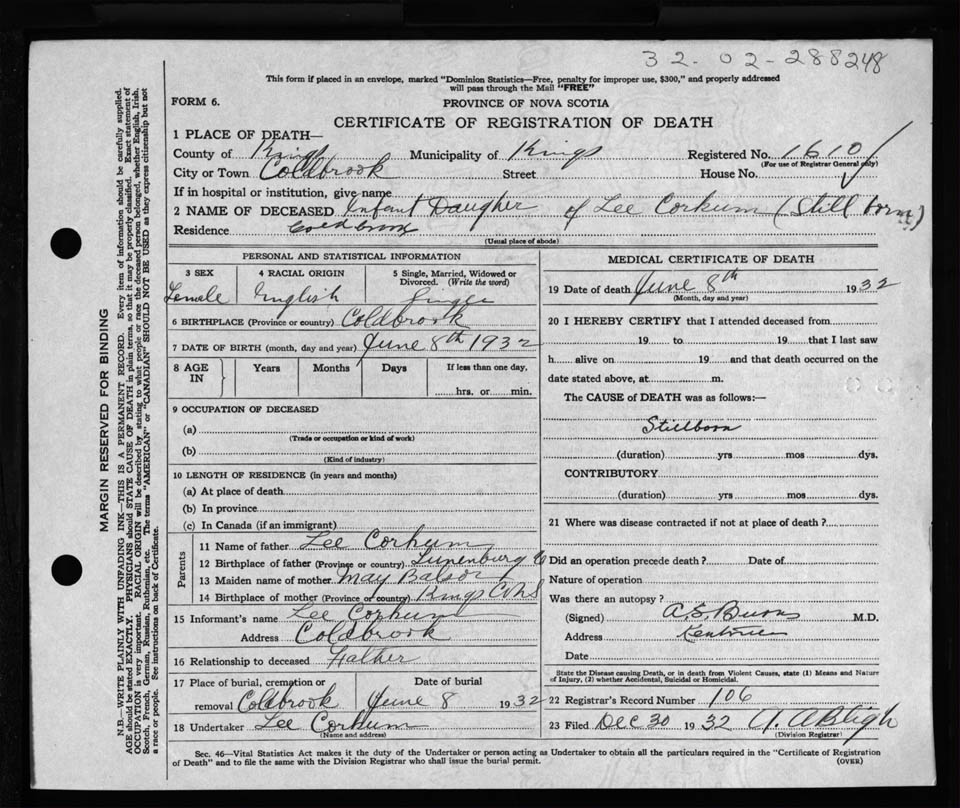 32-02-288248
This form if placed in an envelope, marked "Dominion Statistics—Free, penalty for improper use, $300," and properly addressed
will pass through the Mail "FREE"
FORM 6.
PROVINCE OF NOVA SCOTIA
CERTIFICATE OF REGISTRATION OF DEATH
1 PLACE OF DEATH—
County of Kings Municipality of Kings Registered No. 1610
(For use of Registrar General only)
City or Town Coldbrook Street House No.
If in hospital or institution, give name
2 NAME OF DECEASED Infant Daugher of Lee Corkum (Still born)
Residence Coldbrook
(Usual place of abode)
PERSONAL AND STATISTICAL INFORMATION
3 SEX 4 RACIAL ORIGIN 5 Single, Married, Widowed or
Divorced. (Write the word)
Female English Single
6 BIRTHPLACE (Province or country) Coldbrook
7 DATE OF BIRTH (month, day and year) June 8th 1932
8 AGE IN Years Months Days If less than one day,
hrs. or min.
9 OCCUPATION OF DECEASED
(a)
(Trade or occupation or kind of work)
(b)
(Kind of industry)
10 LENGTH OF RESIDENCE (in years and months)
(a) At place of death
(b) In province
(c) In Canada (if an immigrant)
Parents
11 Name of father Lee Corkum
12 Birthplace of father (Province or country) Lunenburg Co
13 Maiden name of mother May Balsor
14 Birthplace of mother (Province or country) Kings Co NS
15 Informant's name Lee Corkum
Address Coldbrook
16 Relationship to deceased Father
17 Place of burial, cremation or Date of burial
removal Coldbrook June 8 1932
18 Undertaker Lee Corkum
(Name and address)
MEDICAL CERTIFICATE OF DEATH
19 Date of death June 8th 1932
(Month, day and year)
20 I HEREBY CERTIFY that I attended deceased from
19 to 19 that I last saw
h alive on 19 and that death occurred on the
date stated above, at m.
The CAUSE of DEATH was as follows:—
Stillborn
(duration) yrs mos dys.
CONTRIBUTORY
(duration) yrs mos dys.
21 Where was disease contracted if not at place of death?
Did an operation precede death? Date of
Nature of operation
Was there an autopsy?
(Signed) A.S. Burns M.D.
Address Kentville
Date
State the Disease causing Death, or in death from Violent Causes, state (1) Means and Nature
of Injury, (2) whether Accidental, Suicidal or Homicidal.
22 Registrar's Record Number 106
23 Filed Dec 30 1932 A Bligh
(Division Registrar)
Sec. 46—Vital Statistics Act makes it the duty of the Undertaker or person acting as Undertaker to obtain all the particulars required in the "Certificate of Registration
of Death" and to file the same with the Division Registrar who shall issue the burial permit.
(OVER)
MARGIN RESERVED FOR BINDING
N.B.—WRITE PLAINLY WITH UNFADING INK—THIS IS A PERMANENT RECORD. Every item of information should be carefully supplied.
AGE should be stated EXACTLY. PHYSICIANS should STATE CAUSE OF DEATH in plain terms, so that it may be properly classified. Exact statement of
OCCUPATION is very important. RACIAL ORIGIN will be described by stating to what people or race the deceased person belonged, whether English, Irish,
Scotch, French, German, Russian, Ruthenian, etc. The terms "AMERICAN" or "CANADIAN" SHOULD NOT BE USED as they express citizenship but not
a race or people. See instructions on back of Certificate.